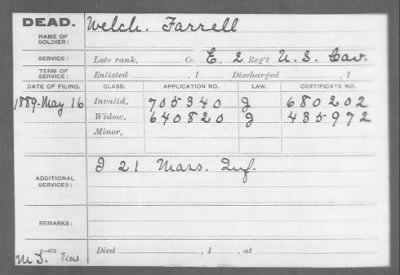 DEAD.
NAME OF SOLDIER:
Welch. Farrell
SERVICE:
Late rank, Co. E. 2 Reg't U. S. Cav.
TERM OF SERVICE:
Enlisted , 1 Discharged , 1
DATE OF FILING. CLASS. APPLICATION NO. LAW. CERTIFICATE NO.
1889-May 16 Invalid, 705340 J 680202
Widow, 640820 J 435972
Minor,
ADDITIONAL SERVICES:
I 21 Mass. Inf.
REMARKS:
Died , 1 , at